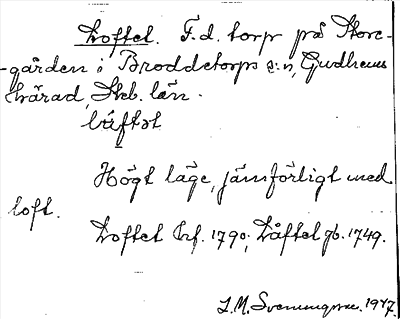 Loftet. F.d. torp på Store-
-gården i Broddetorps s:n, Gudhems
härad, Skb. län.
låftət
Högt läge, jämförligt med
loft.
Loftet Hf. 1790; Låftet gb. 1749.
1947.